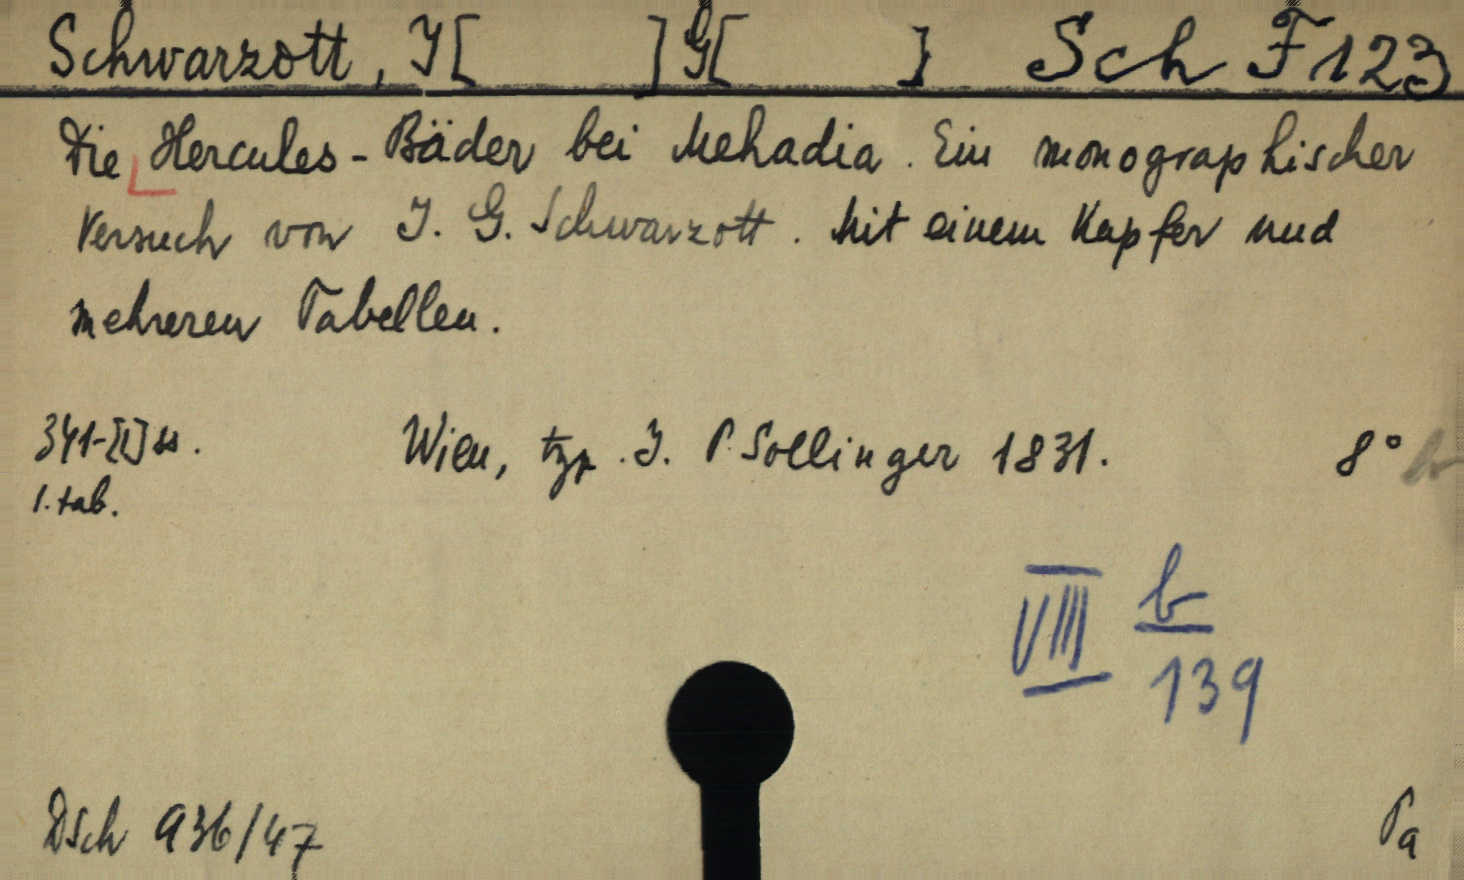 Schwarzott, J[ ]G[ ] Sch F 123
Die Hercules-Bäder bei Mehadia. Ein monographischer
Versuch von J. G. Schwarzott. Mit einem Kupfer und
mehreren Tabellen.
341-[1] ss. Wien, typ. J. P. Sollinger 1831. 8°
1. tab.
VIII b
139
DSch 936/47 Pa